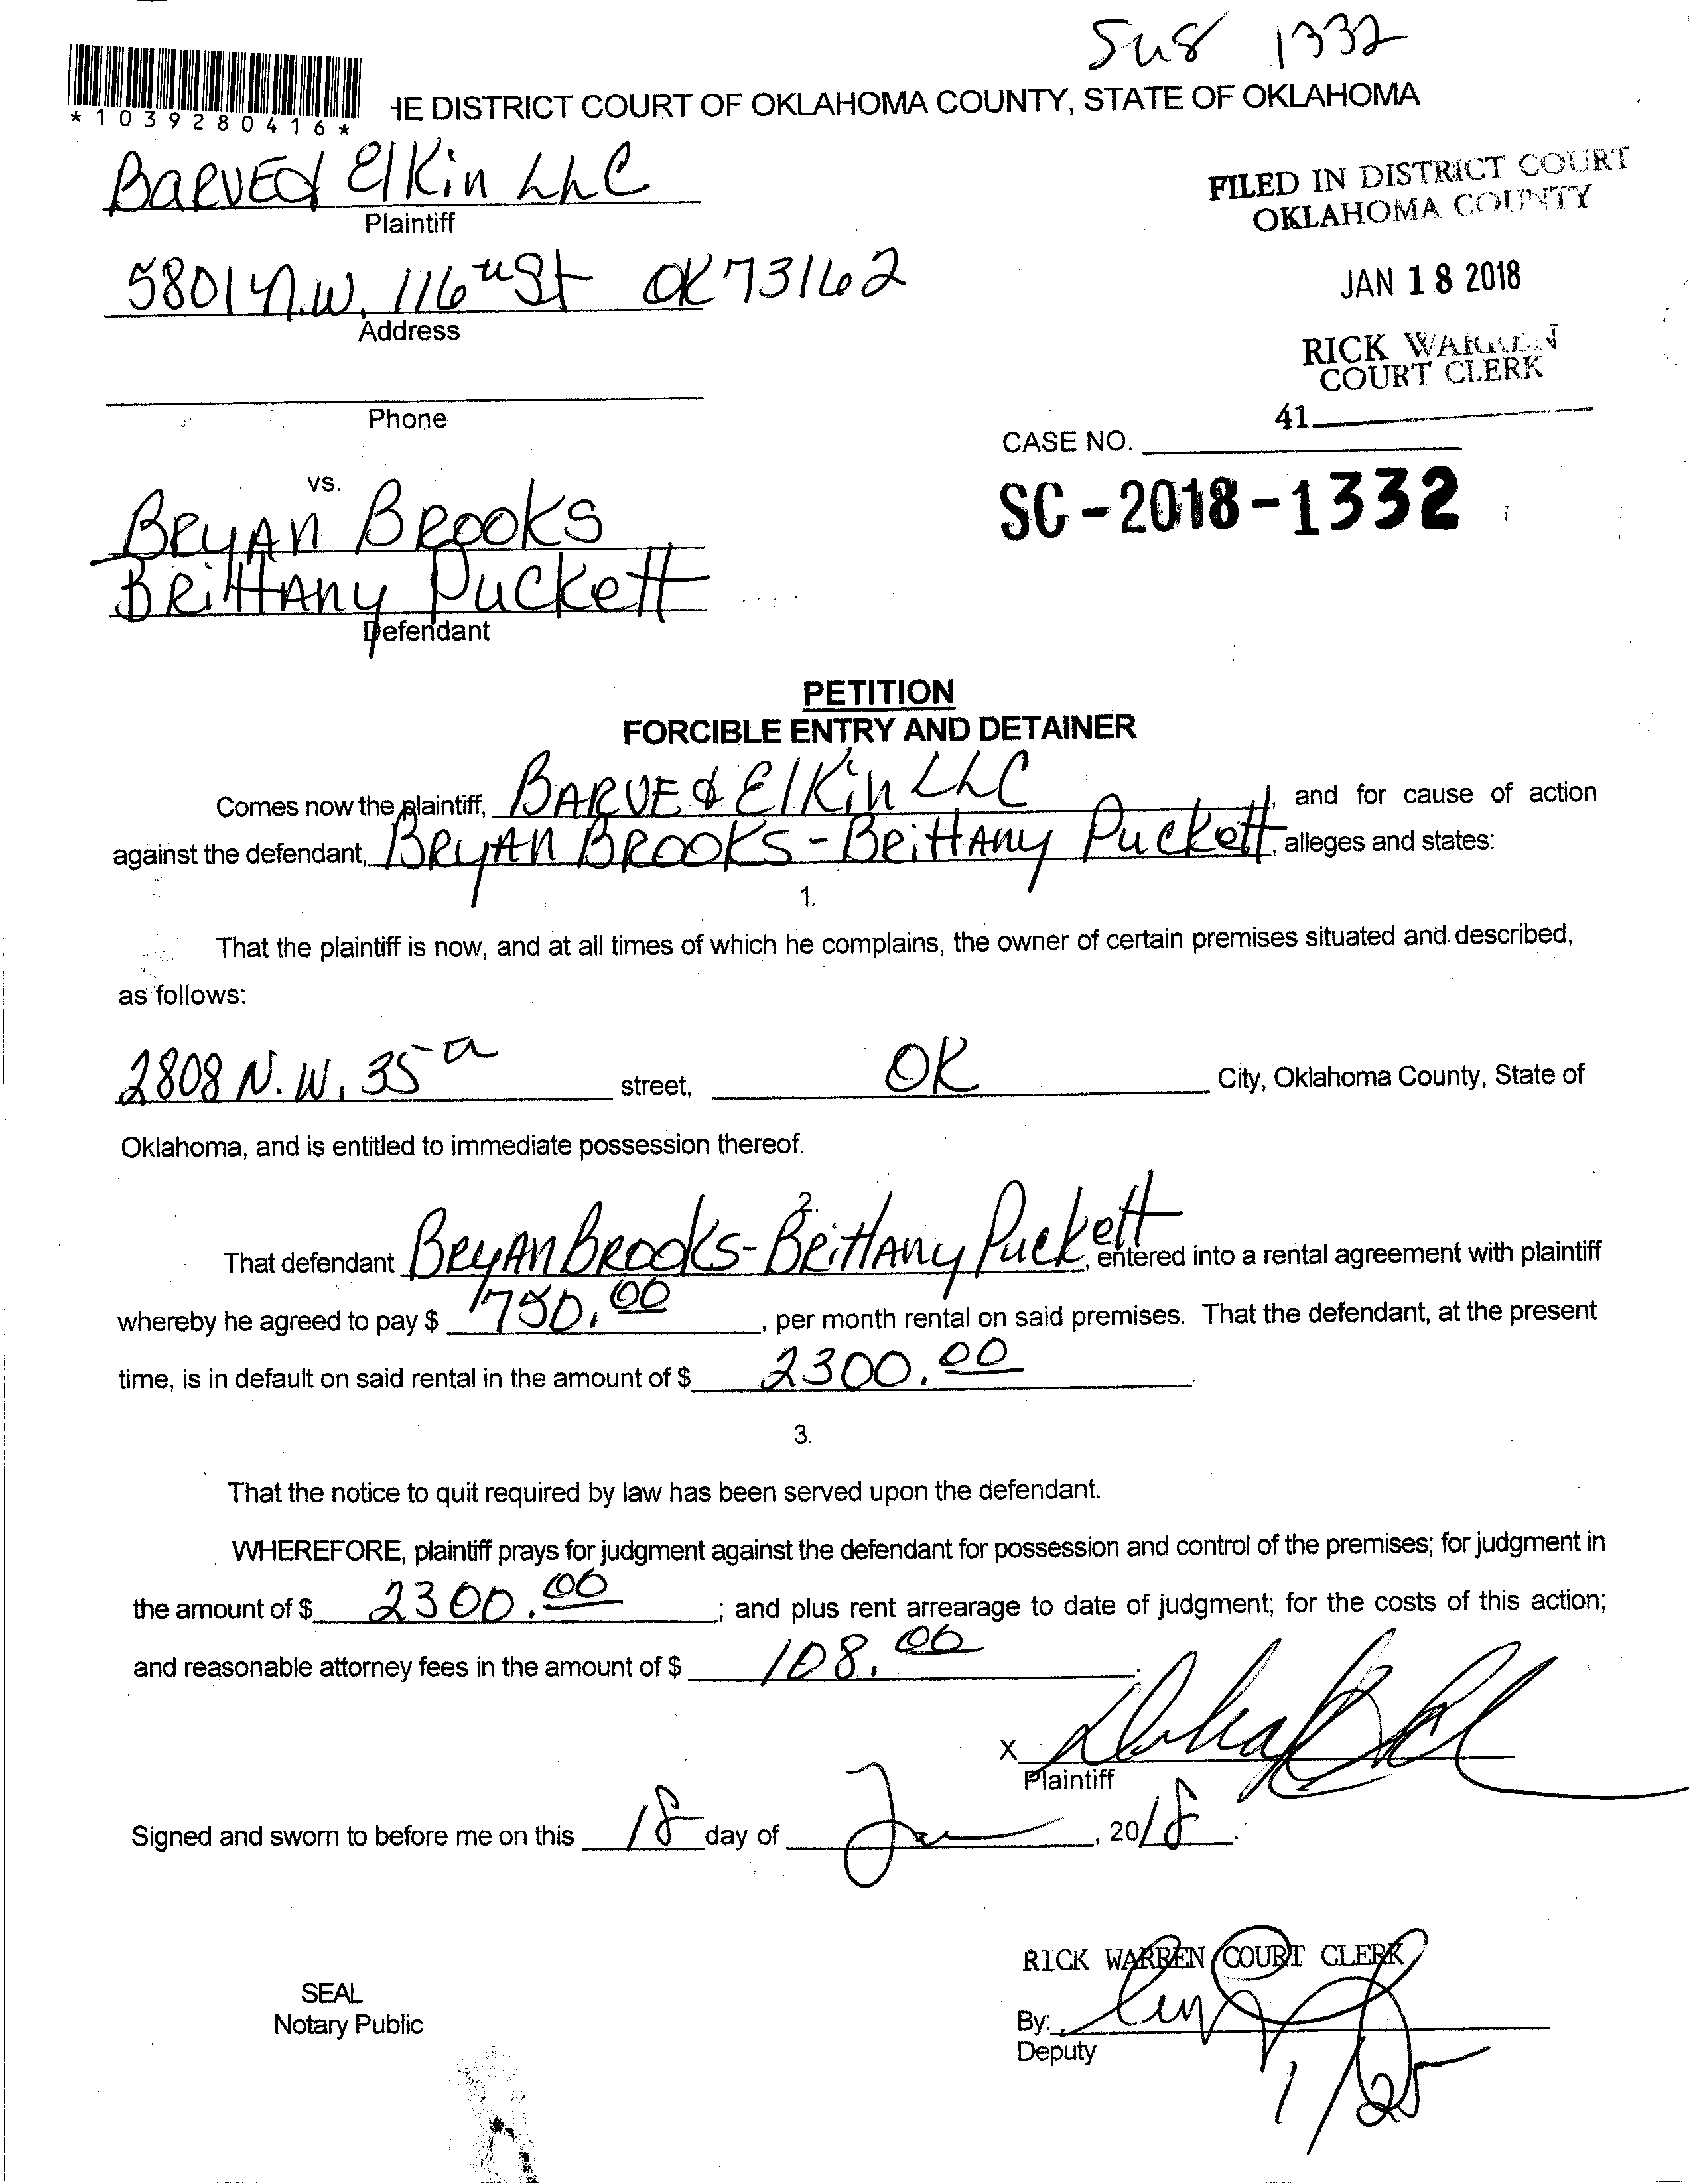 SuS 1332
*1039280416*
HE DISTRICT COURT OF OKLAHOMA COUNTY, STATE OF OKLAHOMA
BARVEd ElKin LLC
Plaintiff
FILED IN DISTRICT COURT
OKLAHOMA COUNTY
5801 N.W. 116th St OK 73162
Address
JAN 18 2018
RICK WARREN
COURT CLERK
Phone
41
CASE NO.
SC-2018-1332
vs.
BRYAN BROOKS
BRiTTANy PuckeTT
Defendant
PETITION
FORCIBLE ENTRY AND DETAINER
Comes now the plaintiff, BARVE & ElKin LLC, and for cause of action
against the defendant, BRYAN BROOKS - BRiTTANy PuckeTT, alleges and states:
1.
That the plaintiff is now, and at all times of which he complains, the owner of certain premises situated and described,
as follows:
2808 N.W. 35th street, OK City, Oklahoma County, State of
Oklahoma, and is entitled to immediate possession thereof.
2.
That defendant BRYAN BROOKS - BRiTTANy PuckeTT, entered into a rental agreement with plaintiff
whereby he agreed to pay $ 750.00, per month rental on said premises. That the defendant, at the present
time, is in default on said rental in the amount of $ 2300.00.
3.
That the notice to quit required by law has been served upon the defendant.
WHEREFORE, plaintiff prays for judgment against the defendant for possession and control of the premises; for judgment in
the amount of $ 2300.00; and plus rent arrearage to date of judgment; for the costs of this action;
and reasonable attorney fees in the amount of $ 108.00.
X
Plaintiff
Signed and sworn to before me on this 18 day of Jan, 2018.
RICK WARREN COURT CLERK
SEAL
Notary Public
By:
Deputy
1/25